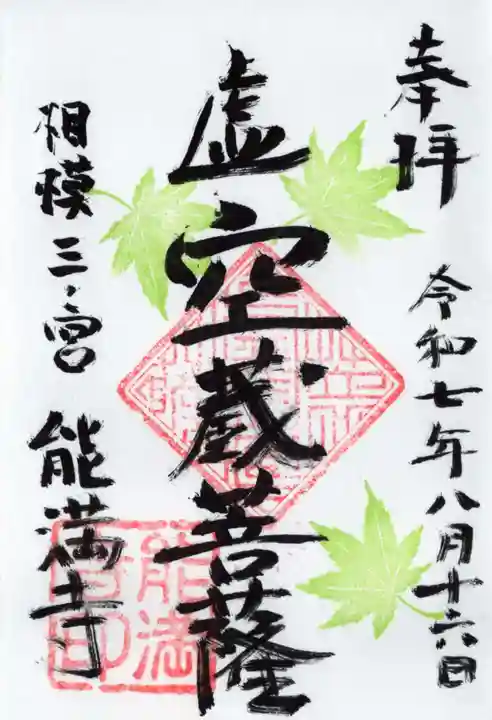 奉拝
令和七年八月十六日
虚空蔵菩薩
相模三ノ宮
能満寺
能満
寺印